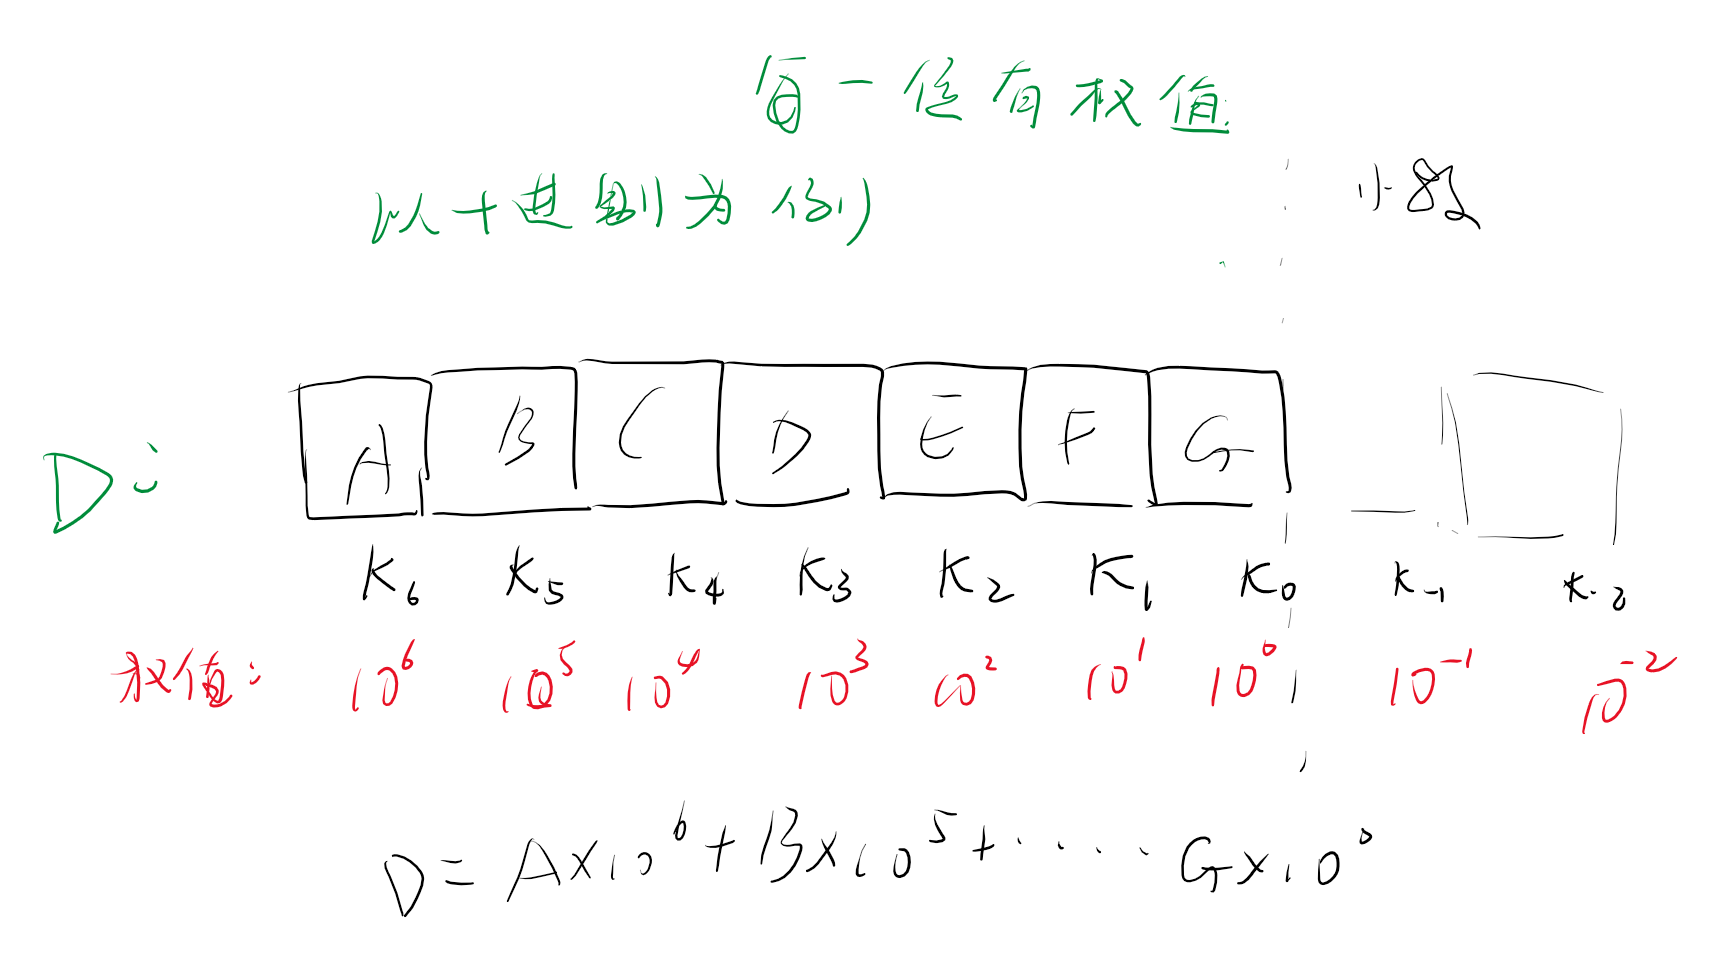 每一位有权值.
以十进制为例
小数
D:
A B C D E F G
K₆ K₅ K₄ K₃ K₂ K₁ K₀ K₋₁ K₋₂
权值: 10⁶ 10⁵ 10⁴ 10³ 10² 10¹ 10⁰ 10⁻¹ 10⁻²
D = A×10⁶ + B×10⁵ + ····· G×10⁰